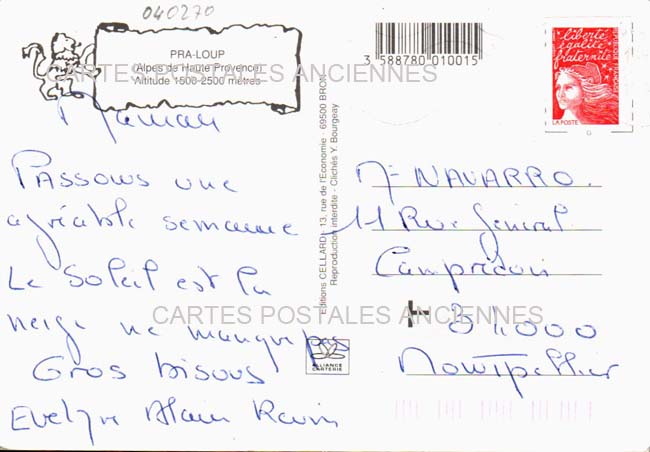 040270
PRA-LOUP
(Alpes de Haute Provence)
Altitude 1500-2500 mètres
CARTES POSTALES ANCIENNES
Maman
Passons une
agréable semaine
Le Soleil est la
neige ne manque pas
Gros bisous
Evelyne Alain Kevin
Editions CELLARD - 13, rue de l'Economie - 69500 BRON
Reproduction interdite - Clichés Y. Bourgeay
ALLIANCE
CARTERIE
3 588780 010015
liberté
égalité
fraternité
LA POSTE
NAVARRO.
11 Rue Général
Campredon
34000
Montpellier
CARTES POSTALES ANCIENNES